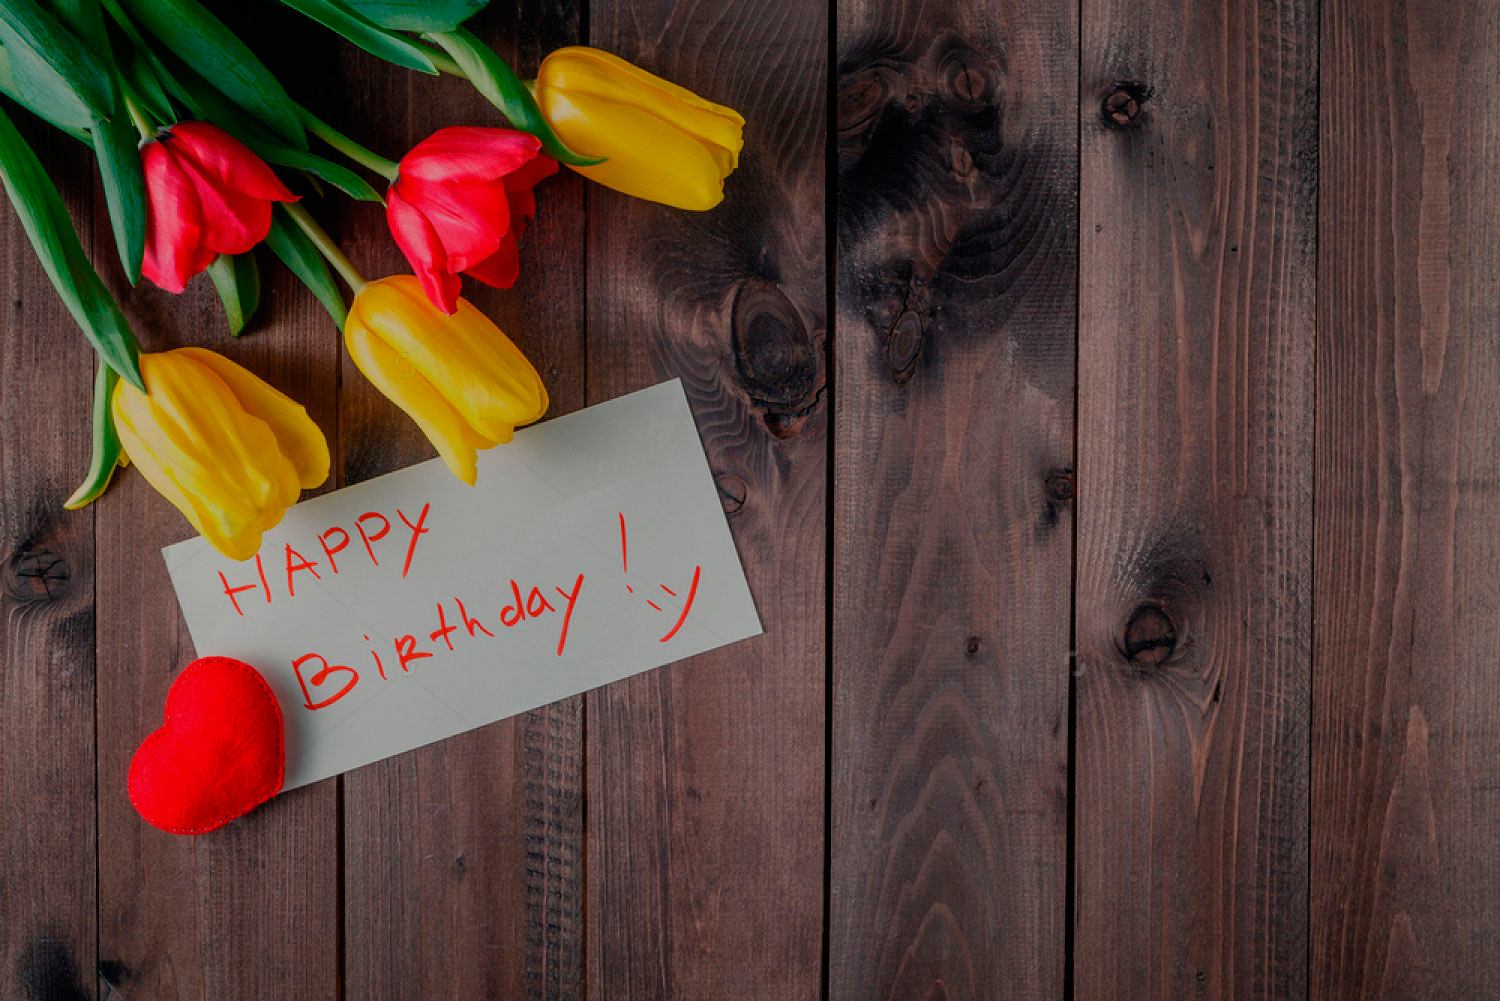 HAPPY
Birthday !